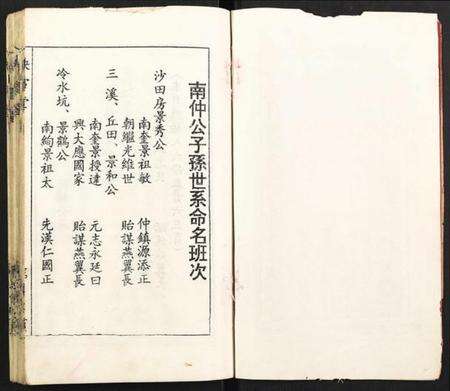 南仲公子孫世系命名班次
沙田房景秀公
南奎景祖敏 仲鎮源添正
朝繼光維世 貽謀燕翼長
三溪、丘田、景和公
南奎景授達 元志永延日
興大應國家 貽謀燕翼長
冷水坑、景鶴公
南絢景祖太 先漢仁國正